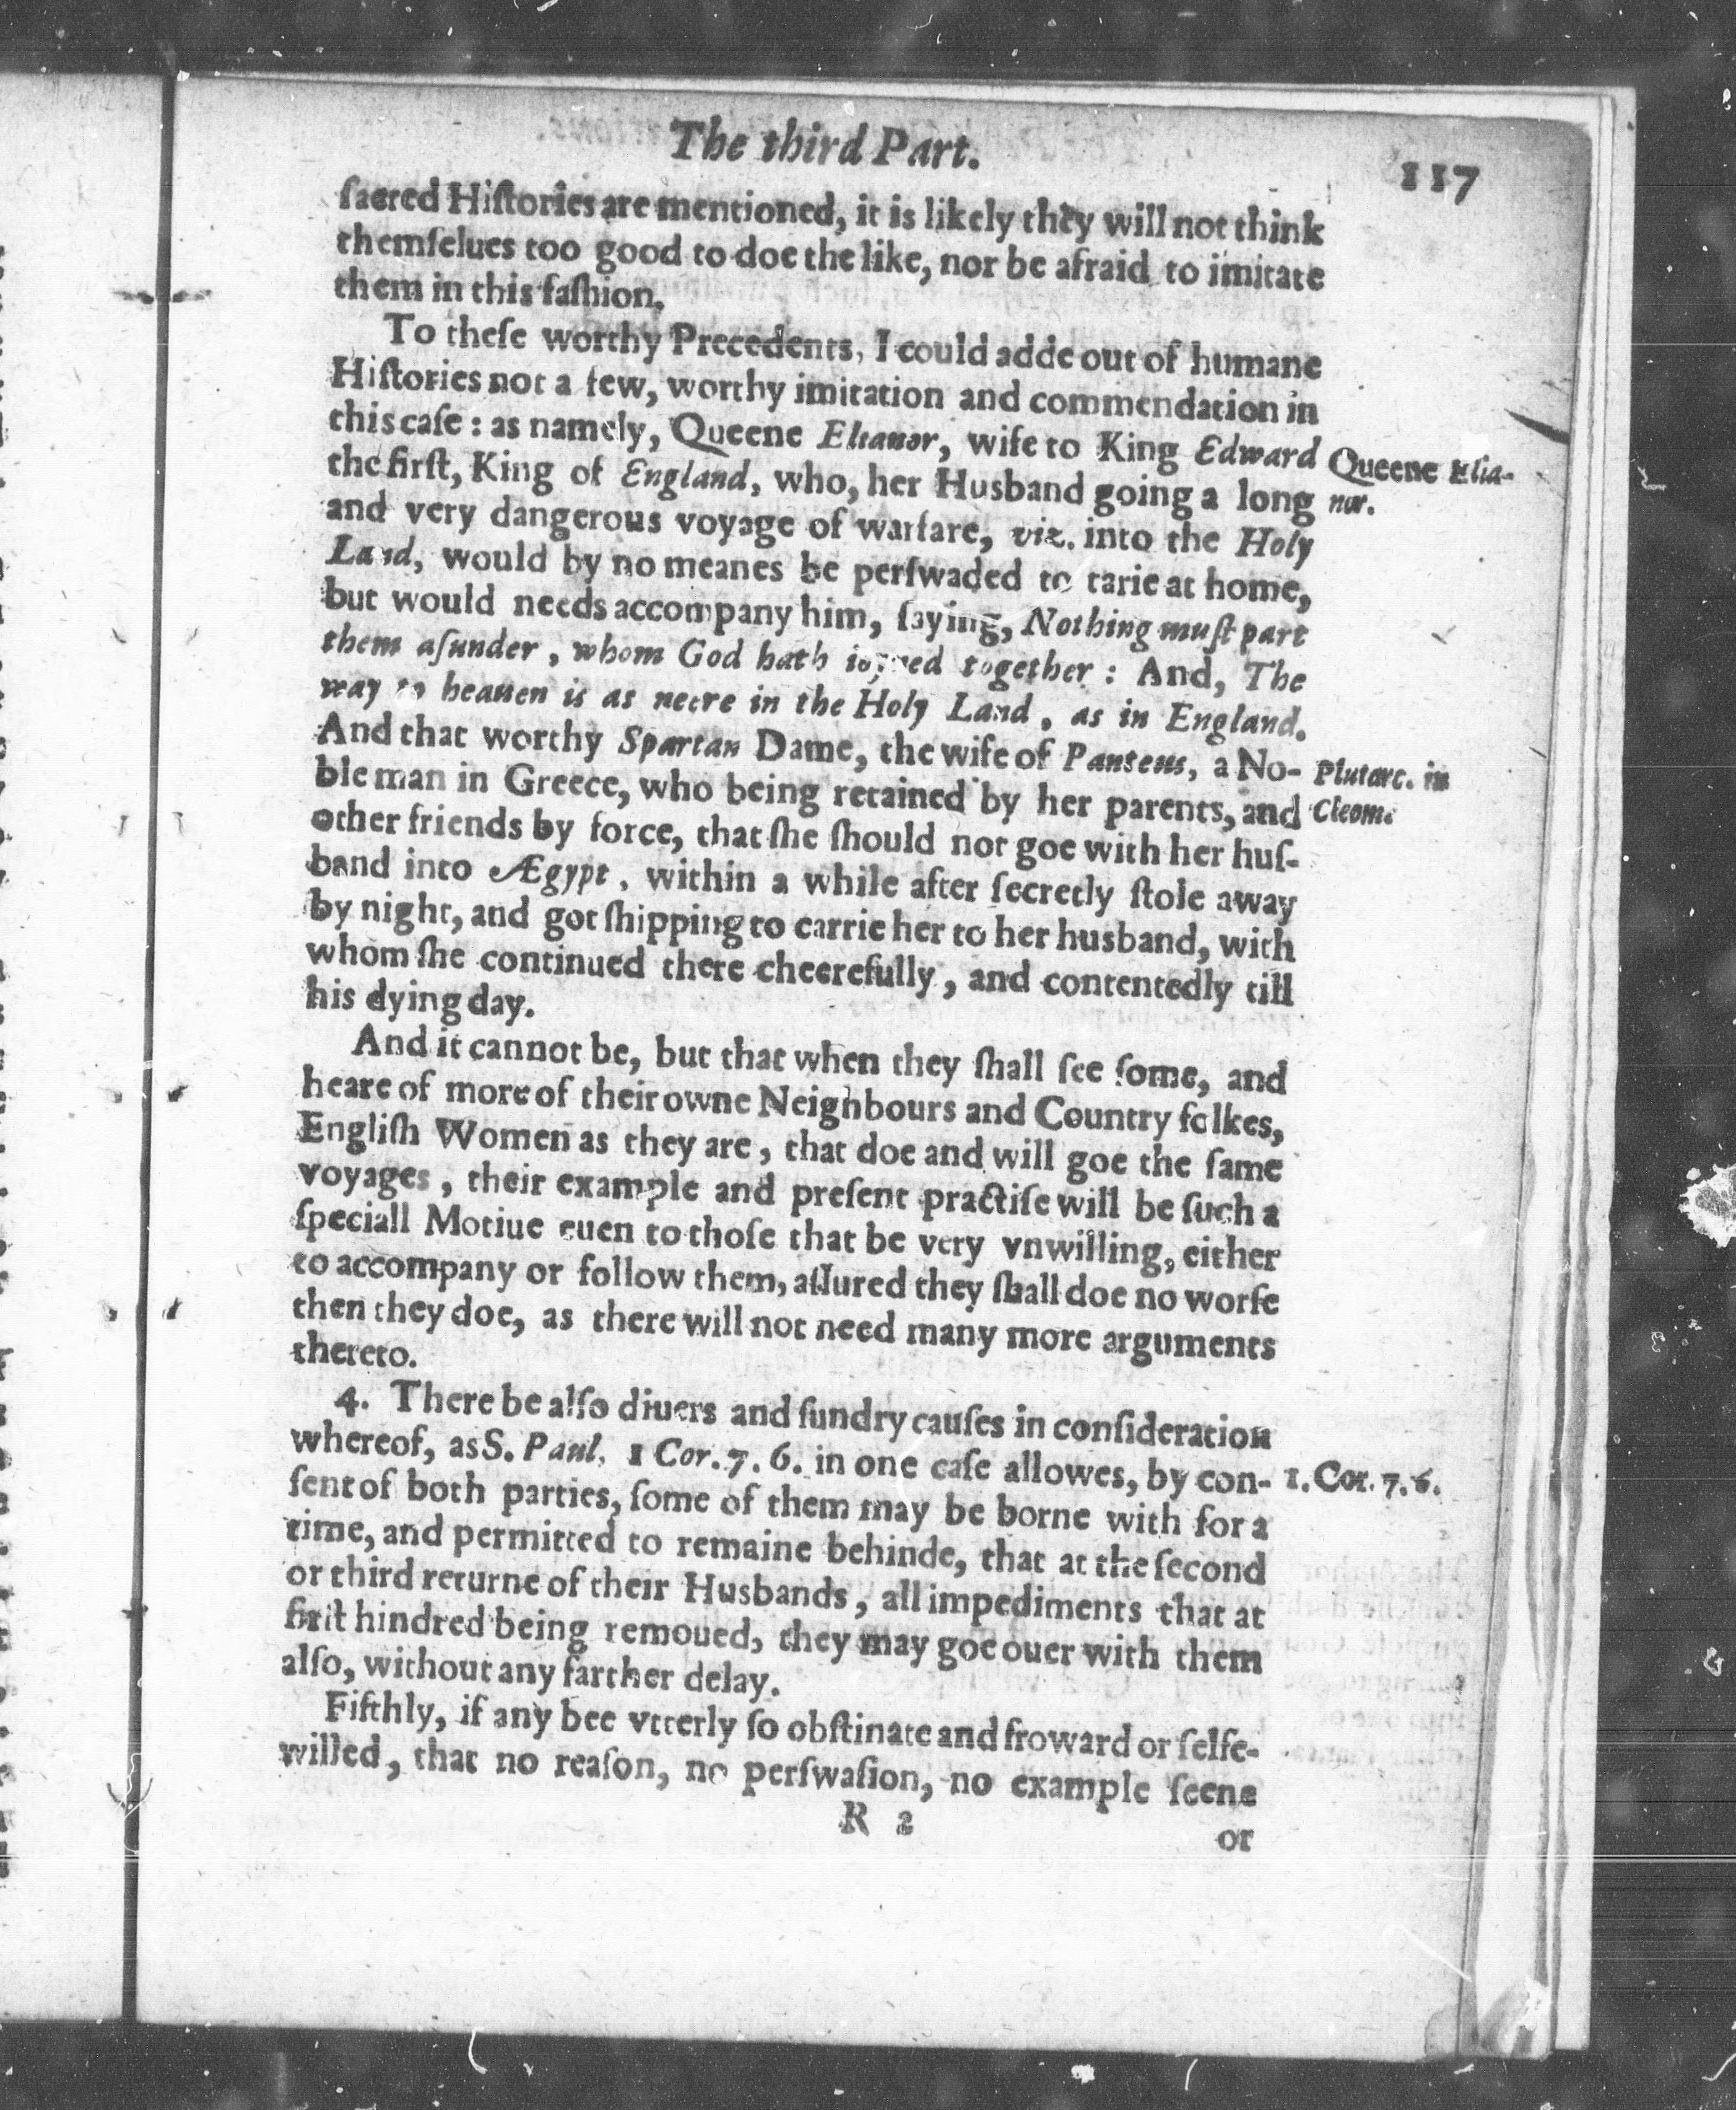 The third Part.
117
ſacred Hiſtories are mentioned, it is likely they will not think
themſelues too good to doe the like, nor be afraid to imitate
them in this faſhion.
To theſe worthy Precedents, I could adde out of humane
Hiſtories not a few, worthy imitation and commendation in
this caſe: as namely, Queene Elianor, wife to King Edward
Queene Elia-
the firſt, King of England, who, her Husband going a long
nor.
and very dangerous voyage of warfare, viz. into the Holy
Land, would by no meanes be perſwaded to tarie at home,
but would needs accompany him, ſaying, Nothing muſt part
them aſunder, whom God hath ioyned together: And, The
way to heauen is as neere in the Holy Land, as in England.
And that worthy Spartan Dame, the wife of Panteus, a No-
Plutarc. in
ble man in Greece, who being retained by her parents, and
Cleom.
other friends by force, that ſhe ſhould not goe with her huſ-
band into Ægypt, within a while after ſecretly ſtole away
by night, and got ſhipping to carrie her to her husband, with
whom ſhe continued there cheerefully, and contentedly till
his dying day.
And it cannot be, but that when they ſhall ſee ſome, and
heare of more of their owne Neighbours and Country folkes,
Engliſh Women as they are, that doe and will goe the ſame
voyages, their example and preſent practiſe will be ſuch a
ſpeciall Motiue euen to thoſe that be very vnwilling, either
to accompany or follow them, aſſured they ſhall doe no worſe
then they doe, as there will not need many more arguments
thereto.
4. There be alſo diuers and ſundry cauſes in conſideration
whereof, as S. Paul, 1 Cor. 7. 6. in one caſe allowes, by con-
1. Cor. 7. 6.
ſent of both parties, ſome of them may be borne with for a
time, and permitted to remaine behinde, that at the ſecond
or third returne of their Husbands, all impediments that at
firſt hindred being remoued, they may goe ouer with them
alſo, without any farther delay.
Fifthly, if any bee vtterly ſo obſtinate and froward or ſelfe-
willed, that no reaſon, no perſwaſion, no example ſeene
R 2
or